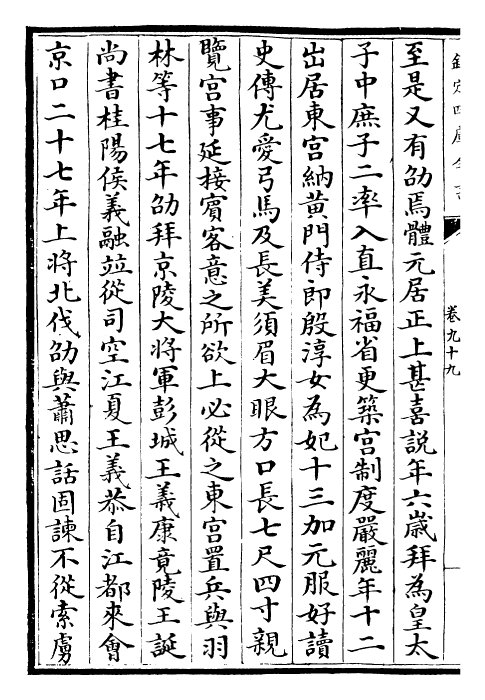 欽定四庫全書
卷九十九
至是又有劭焉體元居正上甚喜說年六歲拜為皇太
子中庶子二率入直永福省更築宫制度嚴麗年十二
出居東宫納黄門侍郎殷淳女為妃十三加元服好讀
史傳尤愛弓馬及長美須眉大眼方口長七尺四寸親
覽宫事延接賓客意之所欲上必從之東宫置兵與羽
林等十七年劭拜京陵大將軍彭城王義康竟陵王誕
尚書桂陽侯義融並從司空江夏王義恭自江都來會
京口二十七年上將北伐劭與蕭思話固諫不從索虜